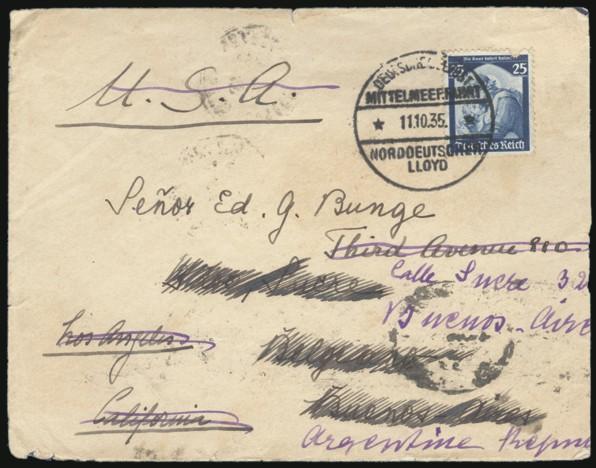 Die Saar kehrt heim!
25
Deutsches Reich
DEUTSCHE SEEPOST
MITTELMEERFAHRT
★ 11.10.35. ★
NORDDEUTSCHER
LLOYD
U.S.A.
Señor Ed. G. Bunge
Third Avenue 880
Sucre
Calle Sucre 32
Buenos-Aire
Los Angeles
Belgrano
California
Buenos-Aires
Argentine Repu